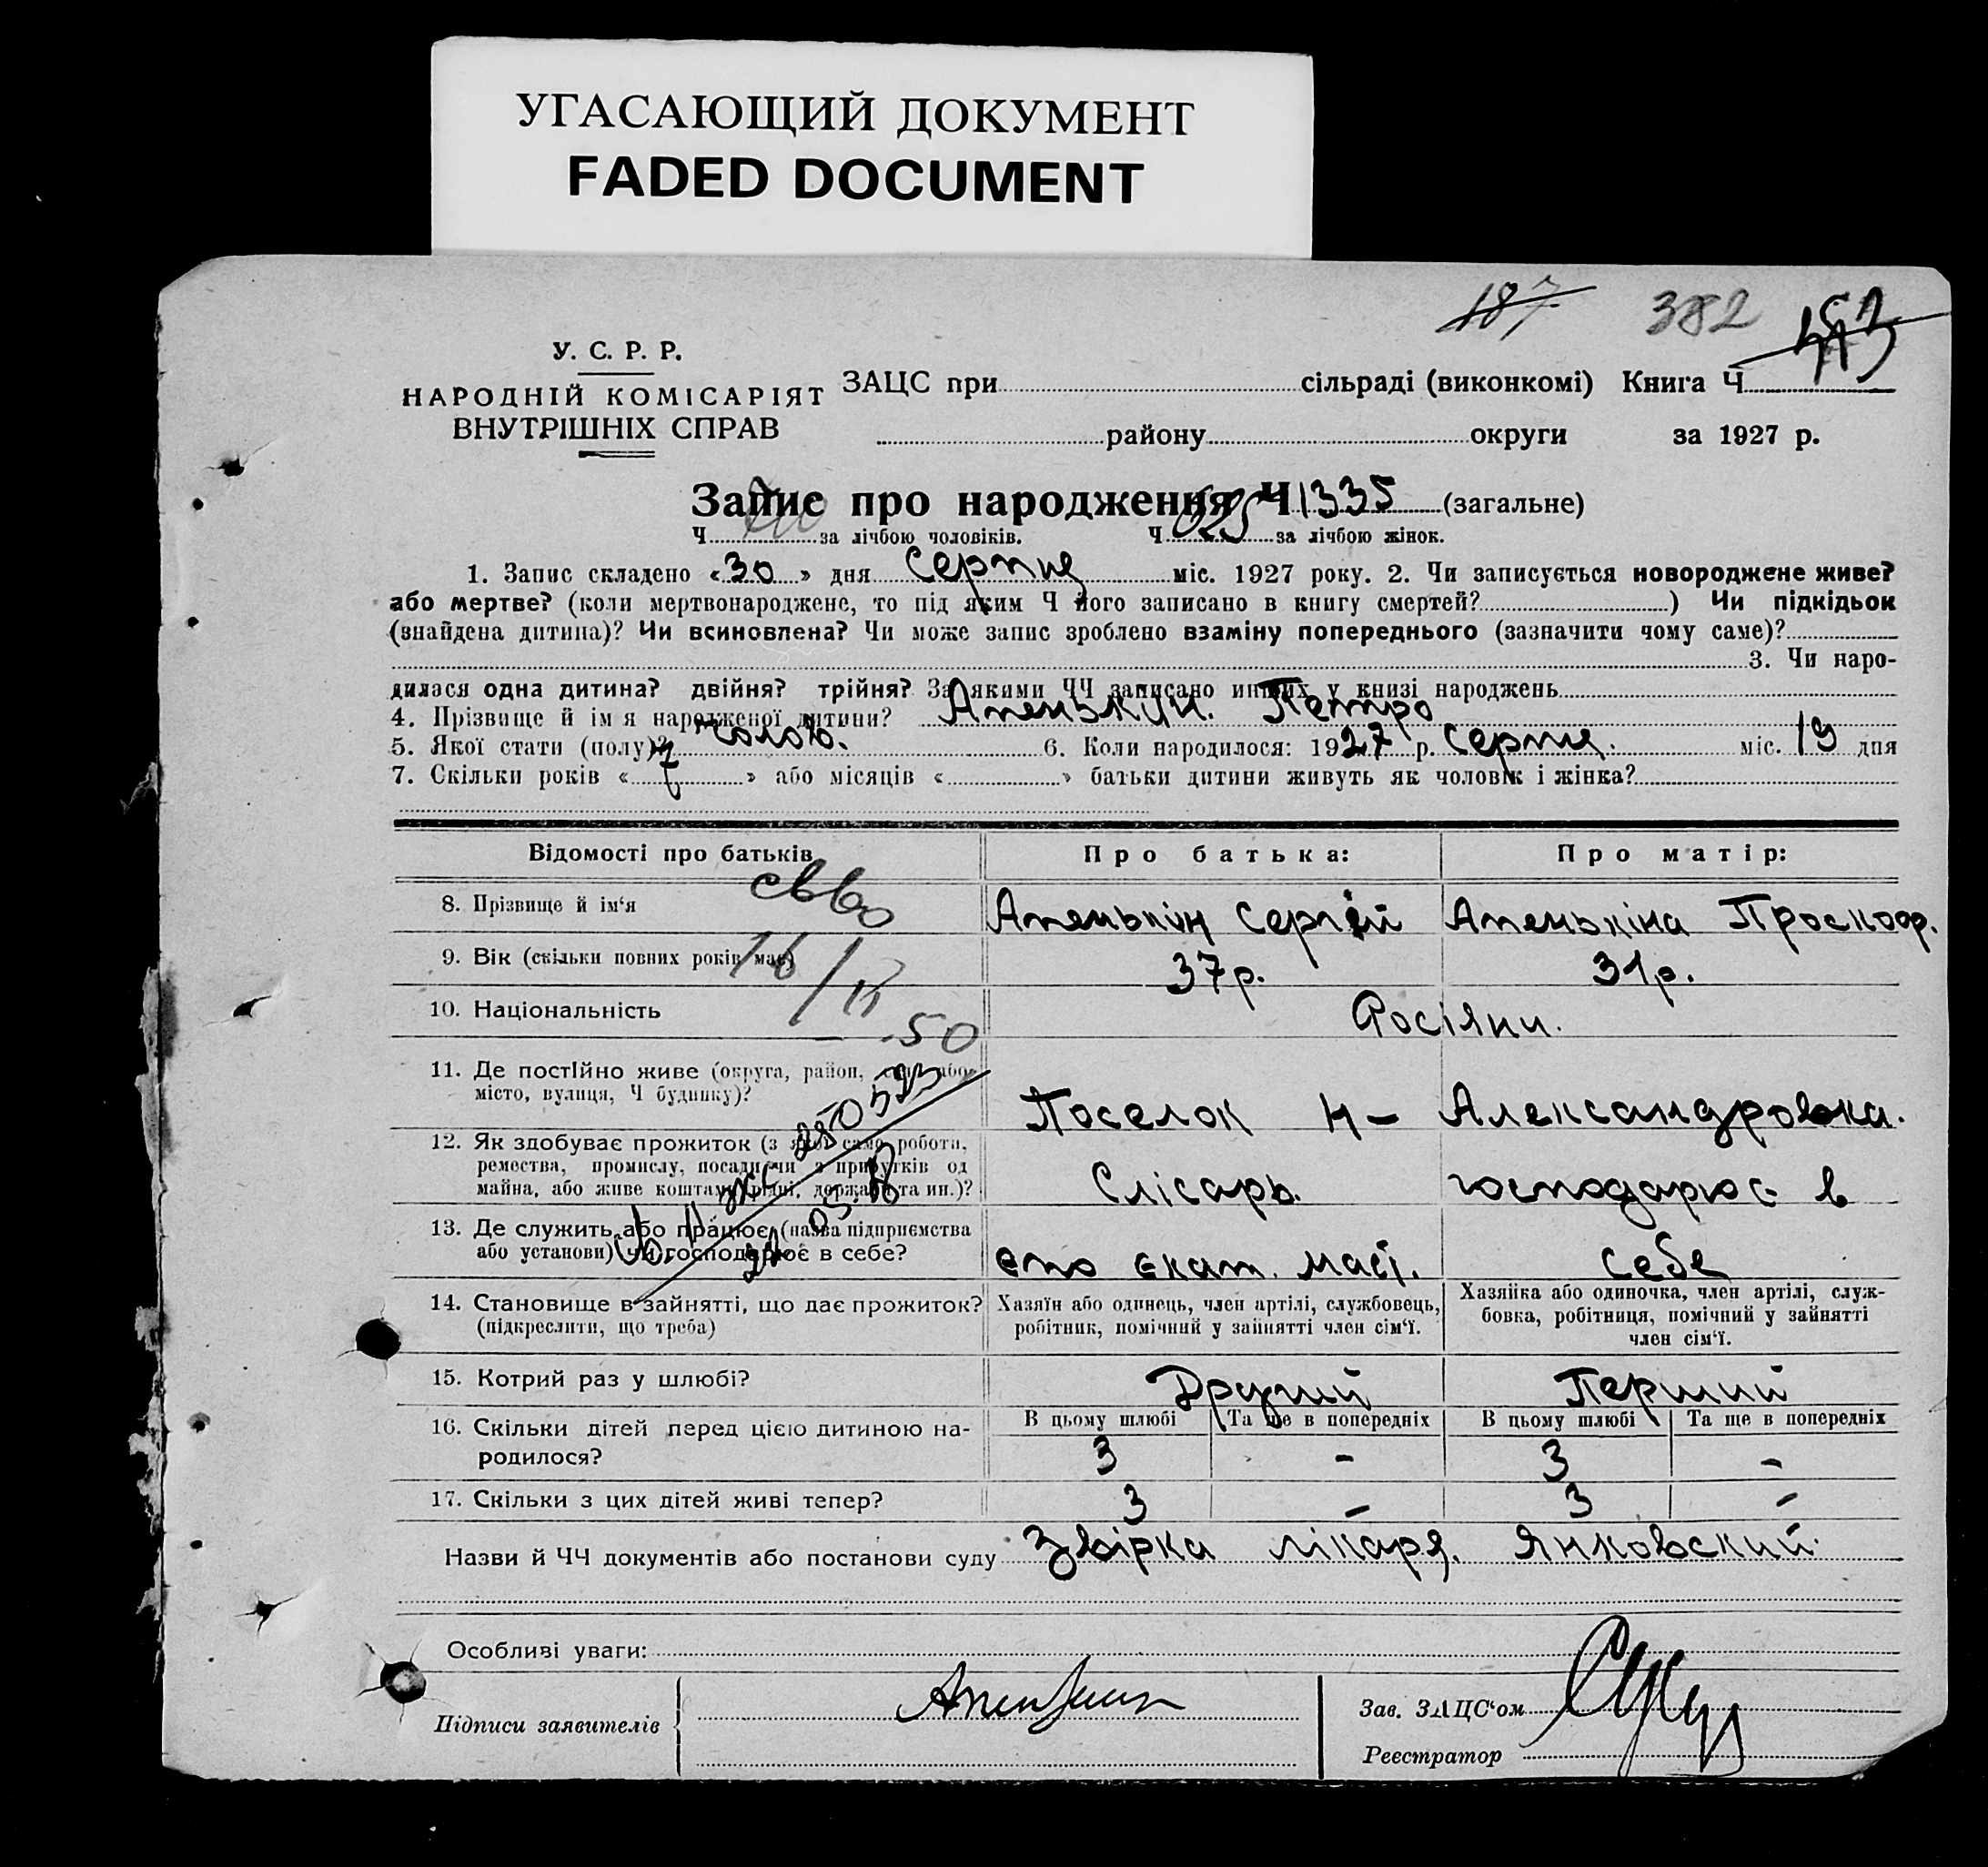 УГАСАЮЩИЙ ДОКУМЕНТ
FADED DOCUMENT
187 382
У. С. Р. Р.
НАРОДНІЙ КОМІСАРІЯТ
ВНУТРІШНІХ СПРАВ
ЗАЦС при сільраді (виконкомі) Книга Ч
району округи за 1927 р.
Запис про народження Ч 1335 (загальне)
Ч за лічбою чоловіків. Ч 625 за лічбою жінок.
1. Запис складено «30» дня Серпня міс. 1927 року. 2. Чи записується новороджене живе?
або мертве? (коли мертвонароджене, то під яким Ч його записано в книгу смертей? ) Чи підкідьок
(знайдена дитина)? Чи всиновлена? Чи може запис зроблено взаміну попереднього (зазначити чому саме)?
3. Чи наро-
дилася одна дитина? двійня? трійня? За якими ЧЧ записано инших у книзі народжень
4. Прізвище й ім я народженої дитини? Апенькин. Петро
5. Якої стати (полу)? Чолов. 6. Коли народилося: 1927 р. Серпня. міс. 19 дня
7. Скільки років « 7 » або місяців « » батьки дитини живуть як чоловік і жінка?
Відомості про батьків Про батька: Про матір:
8. Прізвище й ім‘я Апенькін Сергій Апенькіна Проскофр.
9. Вік (скільки повних років має) 37р. 31р.
16/II 50
10. Національність Росіяни.
11. Де постійно живе (округа, район, село або
місто, вулиця, Ч будинку)? Поселок Н- Александровка.
12. Як здобуває прожиток (з якої само роботи,
ремества, промислу, посади чи з прибутків од
майна, або живе коштами рідні, держави та ин.)? Слісарь. господарює в
13. Де служить або працює (назва підприємства
або установи) чи господарює в себе? Єпо Єкат. себе
14. Становище в зайнятті, що дає прожиток?
(підкреслити, що треба)
Хазяїн або одинець, член артілі, службовець,
робітник, помічний у зайнятті член сім‘ї.
Хазяйка або одиночка, член артілі, служ-
бовка, робітниця, помічний у зайнятті
член сім‘ї.
15. Котрий раз у шлюбі? Другий Перший
В цьому шлюбі Та ще в попередніх В цьому шлюбі Та ще в попередніх
16. Скільки дітей перед цією дитиною на-
родилося? 3 - 3 -
17. Скільки з цих дітей живі тепер? 3 - 3 -
Назви й ЧЧ документів або постанови суду Звірка лікаря. Янковский.
Особливі уваги:
Підписи заявителів Апенькин
Зав. ЗАЦС‘ом
Реєстратор